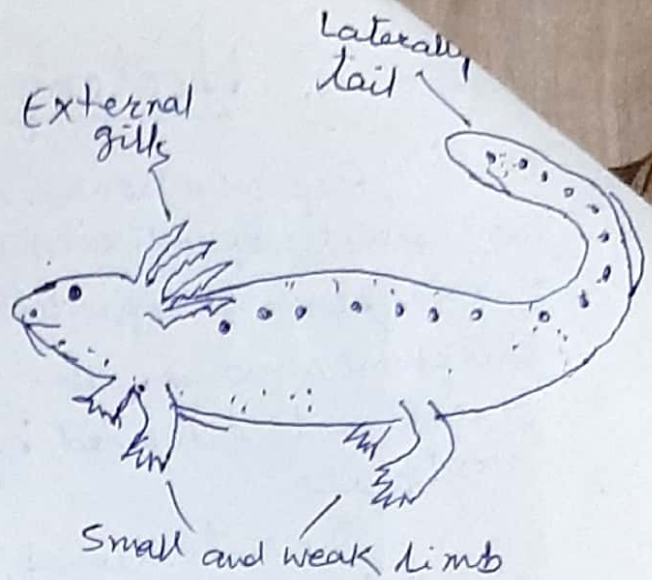 Laterally
tail
External
gills
Small and weak limb